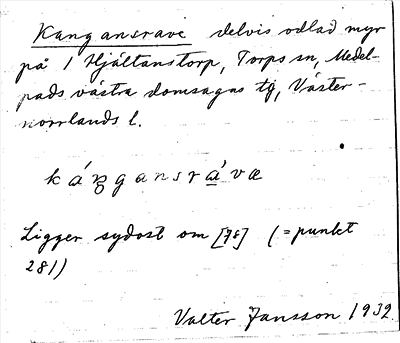 Kangansrave delvis odlad myr
på 1 Hjältanstorp, Torps sn, Medel-
pads västra domsagas tg, Väster-
norrlands l.
káŋgansrávæ
Ligger sydost om [78] (=punkt
281)
Valter Jansson 1932.